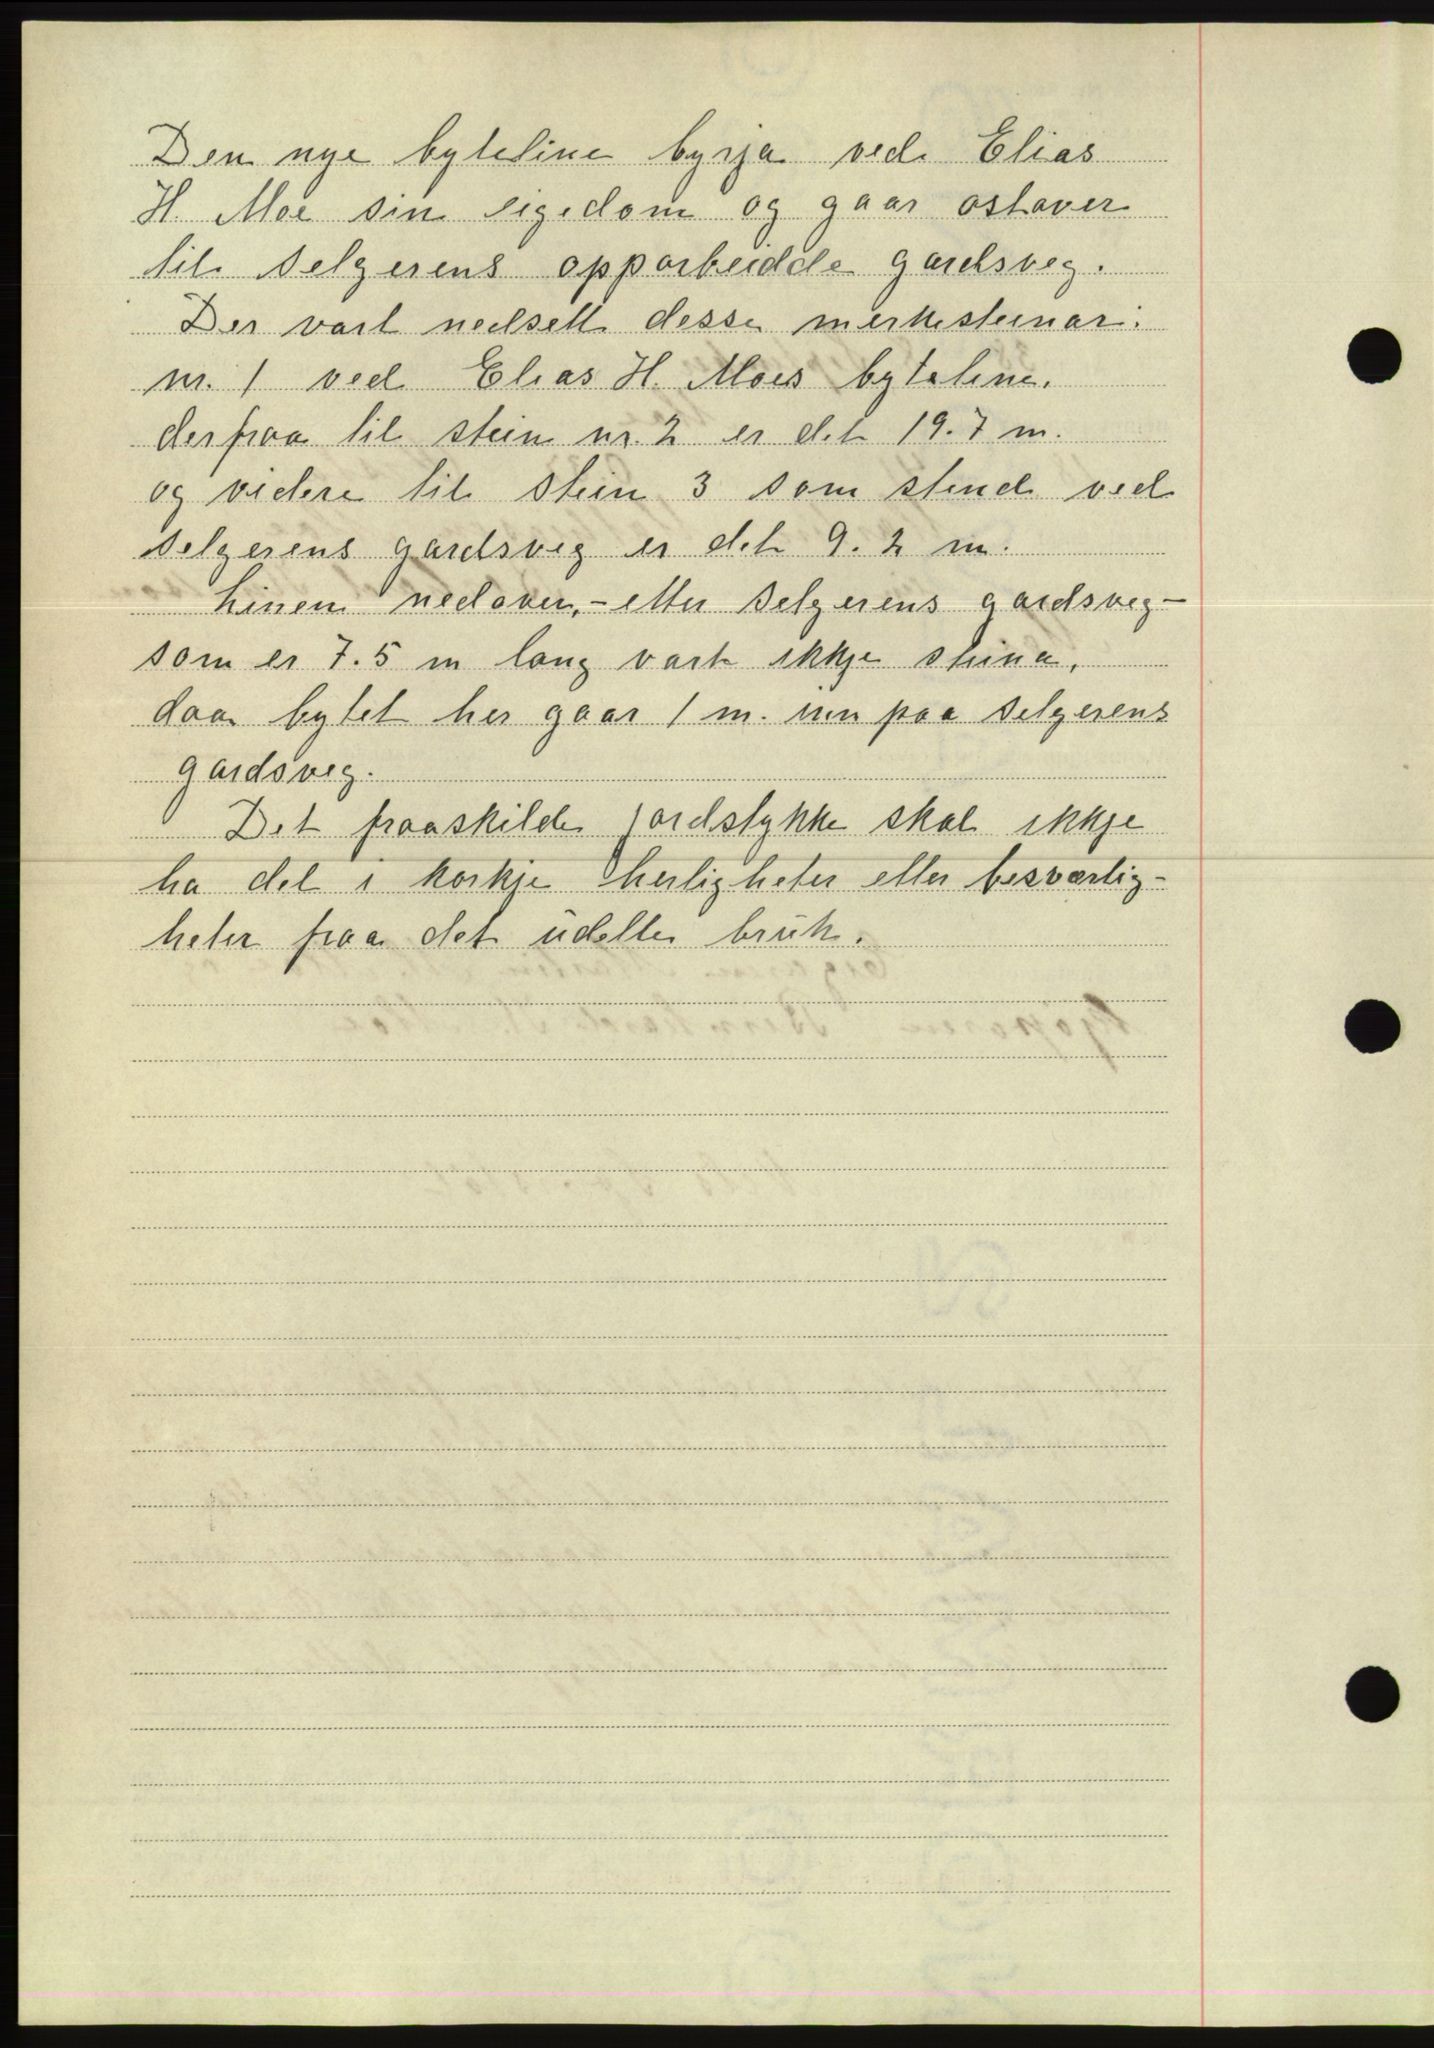 Den nye byteline byrja ved Elias
H. Moe sin eigedom og gaar ostover
til selgerens opparbeidde gardsveg.
Der vart nedsett desse merkesteinar:
nr. 1 ved Elias H. Moes byteline.
derfraa til stein nr. 2 er det 19.7 m.
og videre til stein 3 som stend ved
selgerens gardsveg er det 9.2 m.
Linen nedover, - etter selgerens gardsveg -
som er 7.5 m lang vart ikkje steina,
daa bytet her gaar 1 m. inn paa selgerens
gardsveg.
Det fraaskilde jordstykke skal ikkje
ha del i korkje herligheter eller besværlig-
heter fraa det udelte bruk.